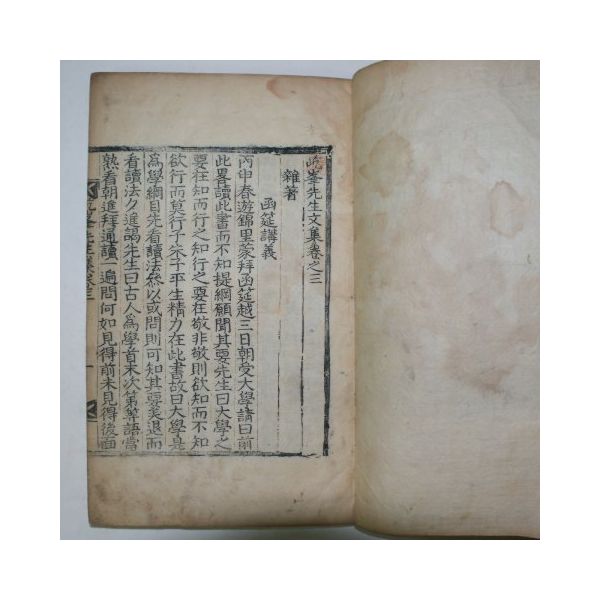 峰先生文集卷之三
雜著
函筵講義
丙申春遊錦里蒙拜函筵越三日朝受大學請曰前
此畧讀此書而不知提綱願聞其要先生曰大學之
要在知而行之知行之要在敬非敬則欲知而不知
欲行而莫行子朱子平生精力在此書故曰大學是
爲學綱目先看讀法參以或問則可知其要矣退而
看讀法夕進謁先生曰古人爲學首末次第等語當
熟看朝進拜通讀一遍問何如見得前未見得後面